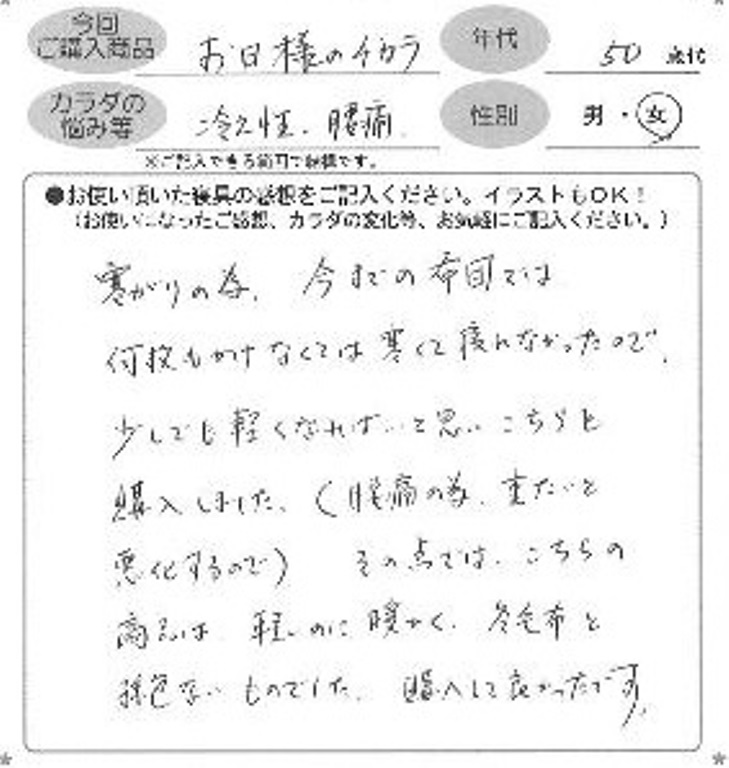 今回
ご購入商品 お日様のチカラ 年代 50 歳代
カラダの
悩み等 冷え性、腰痛 性別 男・女
※ご記入できる範囲で結構です。
●お使い頂いた寝具の感想をご記入ください。イラストもOK!
(お使いになったご感想、カラダの変化等、お気軽にご記入ください。)
寒がりの為、今までの布団では
何枚もかけなくては寒くて寝れなかったので、
少しでも軽くなればいいと思いこちらを
購入しました。(腰痛の為、重たいと
悪化するので) その点では、こちらの
商品は、軽いのに暖かく、冬毛布と
遜色ないものでした。購入して良かったです。